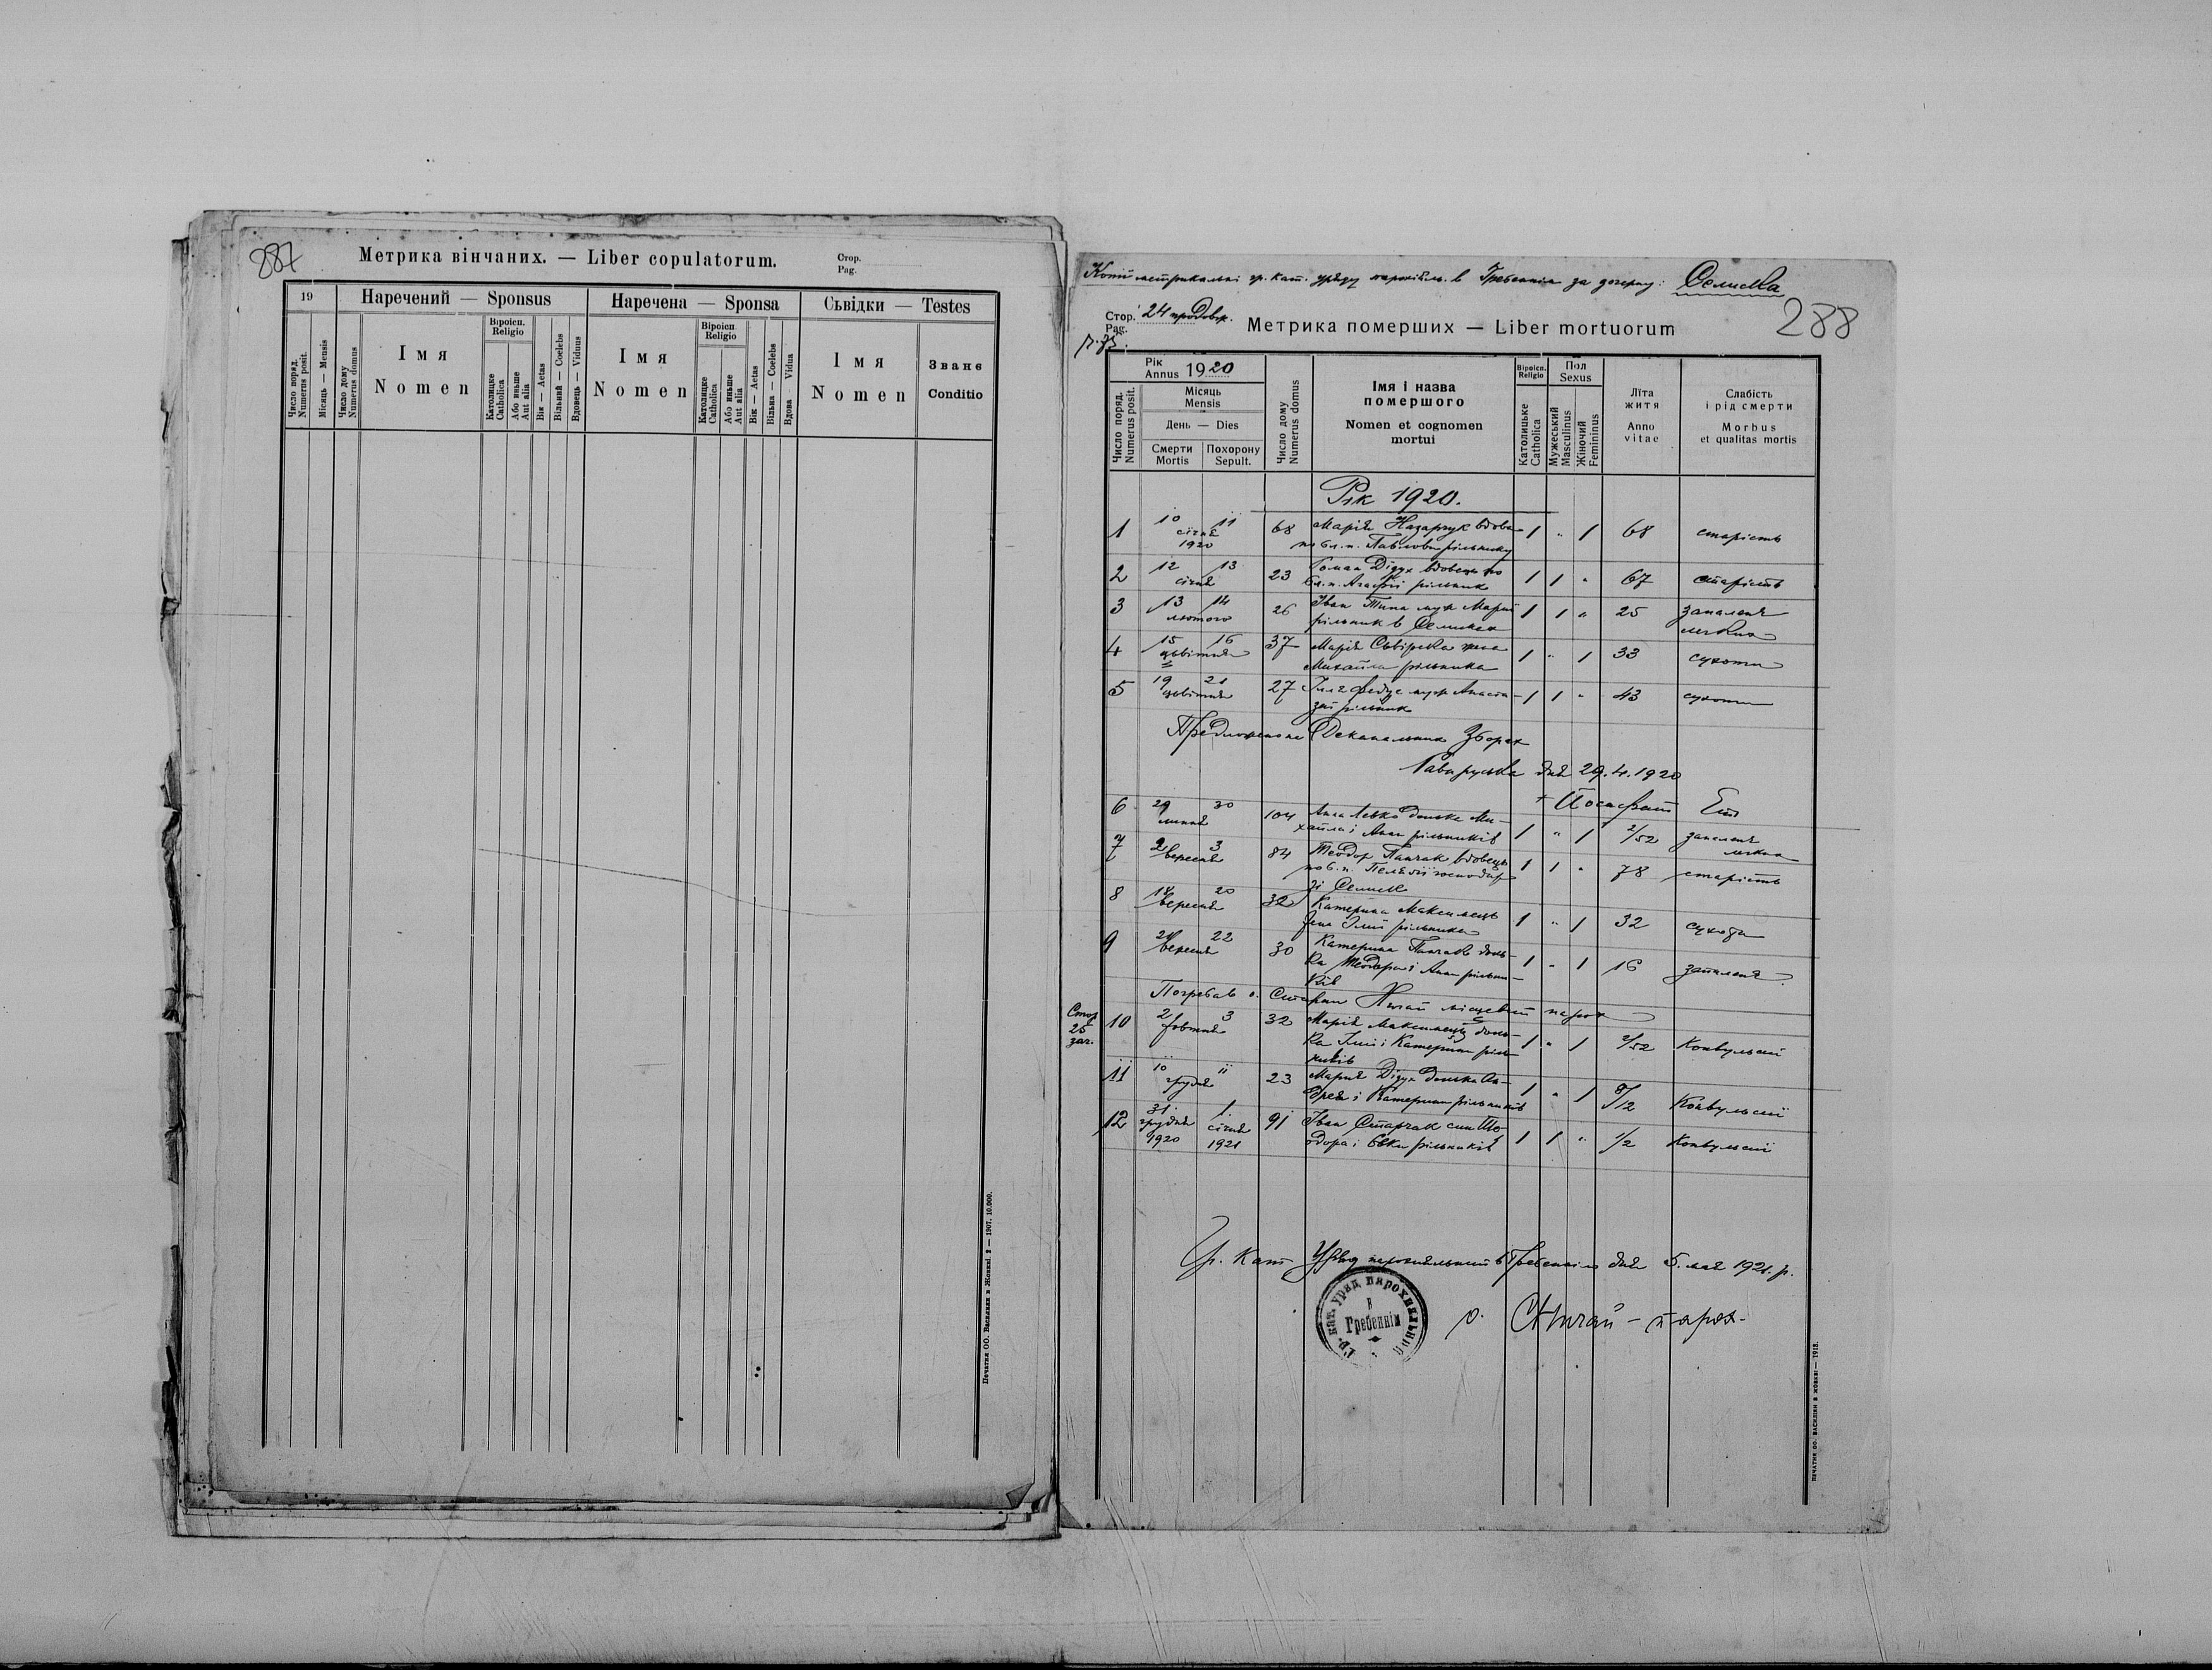 287
Метрика вінчаних. — Liber copulatorum.
Стор.
Pag.
19
Наречений — Sponsus
Наречена — Sponsa
Сьвідки — Testes
Число поряд.
Numerus posit.
Місяць — Mensis
Число дому
Numerus domus
Імя
Nomen
Віроісп.
Religio
Католицке
Catholica
Або иньше
Aut alia
Вік — Aetas
Вільний — Coelebs
Вдовець — Viduus
Імя
Nomen
Віроісп.
Religio
Католицке
Catholica
Або иньше
Aut alia
Вік — Aetas
Вільна — Coelebs
Вдова Vidua
Імя
Nomen
Званє
Conditio
Печатня ОО. Василиян в Жовкві. 2 — 1907. 10.000.
Копії метрикальні гр. кат. уряду парохіяль. в Гребеннім за дочерну: Селиска
288
Стор. 24 продовж.
Pag.
Метрика померших — Liber mortuorum
Рік
Annus 1920
Число поряд.
Numerus posit.
Місяць
Mensis
День — Dies
Смерти
Mortis
Похорону
Sepult.
Число дому
Numerus domus
Імя і назва
помершого
Nomen et cognomen
mortui
Віроісп.
Religio
Католицьке
Catholica
Пол
Sexus
Мужеський
Masculinus
Жіночий
Femininus
Лїта
житя
Anno
vitae
Слабість
і рід смерти
Morbus
et qualitas mortis
Рік 1920.
1 10 11 січня 1920 68 Марія Назарчук вдова 1 " 1 68 старість
по бл. п. Павлови рільнику
2 12 13 січня 23 Роман Дїдух вдовець по 1 1 " 67 старість
бл. п. Агафії рільник
3 13 14 лютого 26 Іван Типа муж Марії 1 1 " 25 запаленя
рільник в Селисках легких
4 15 16 цьвітня 37 Марія Сьвірска жена 1 " 1 33 сухоти
Михайла рільника
5 19 21 цьвітня 27 Ілля Федус муж Анаста- 1 1 " 43 сухоти
зиї рільник
Предложено на Деканальних Зборах
Рава руська дня 29.4.1920
+ Йосафат Еп
6 29 30 липня 104 Анна Левко донька Ми- 1 " 1 2/52 запаленя
хайла і Анни рільників легких
7 2 3 вересня 84 Теодор Панчак вдовець 1 1 " 78 старість
по б. п. Пелягії господар
зі Селиск
8 18 20 вересня 32 Катерина Максимець 1 " 1 32 сухоти
жена Ілії рільника
9 21 22 вересня 30 Катерина Панчак донь- 1 " 1 16 запаленя
ка Теодора і Анни рільни-
ків
Погребав о. Стефан Ничай місцевий парох
Стор
25
зач.
10 2 3 жовтня 32 Марія Максимець донь- 1 " 1 2/52 Конвульсиї
ка Ілії і Катерини рільн-
ників
11 10 11 грудня 23 Мария Дїдух донька Ан- 1 " 1 8/12 Конвульсиї
дрея і Катерини рільників
12 31 грудня 1920 1. січня 1921 91 Іван Старчак син Тео- 1 1 " 1/2 Конвульсиї
дора і Евки рільників
Гр. Кат. Уряд парохіяльний в Гребеннім дня 5. мая 1921. р.
Гр. кат. уряд парохіяльний
в
Гребеннім
о. С Ничай – парох.
ПЕЧАТНЯ ОО. ВАСИЛІЯН В ЖОВКВІ — 1918.